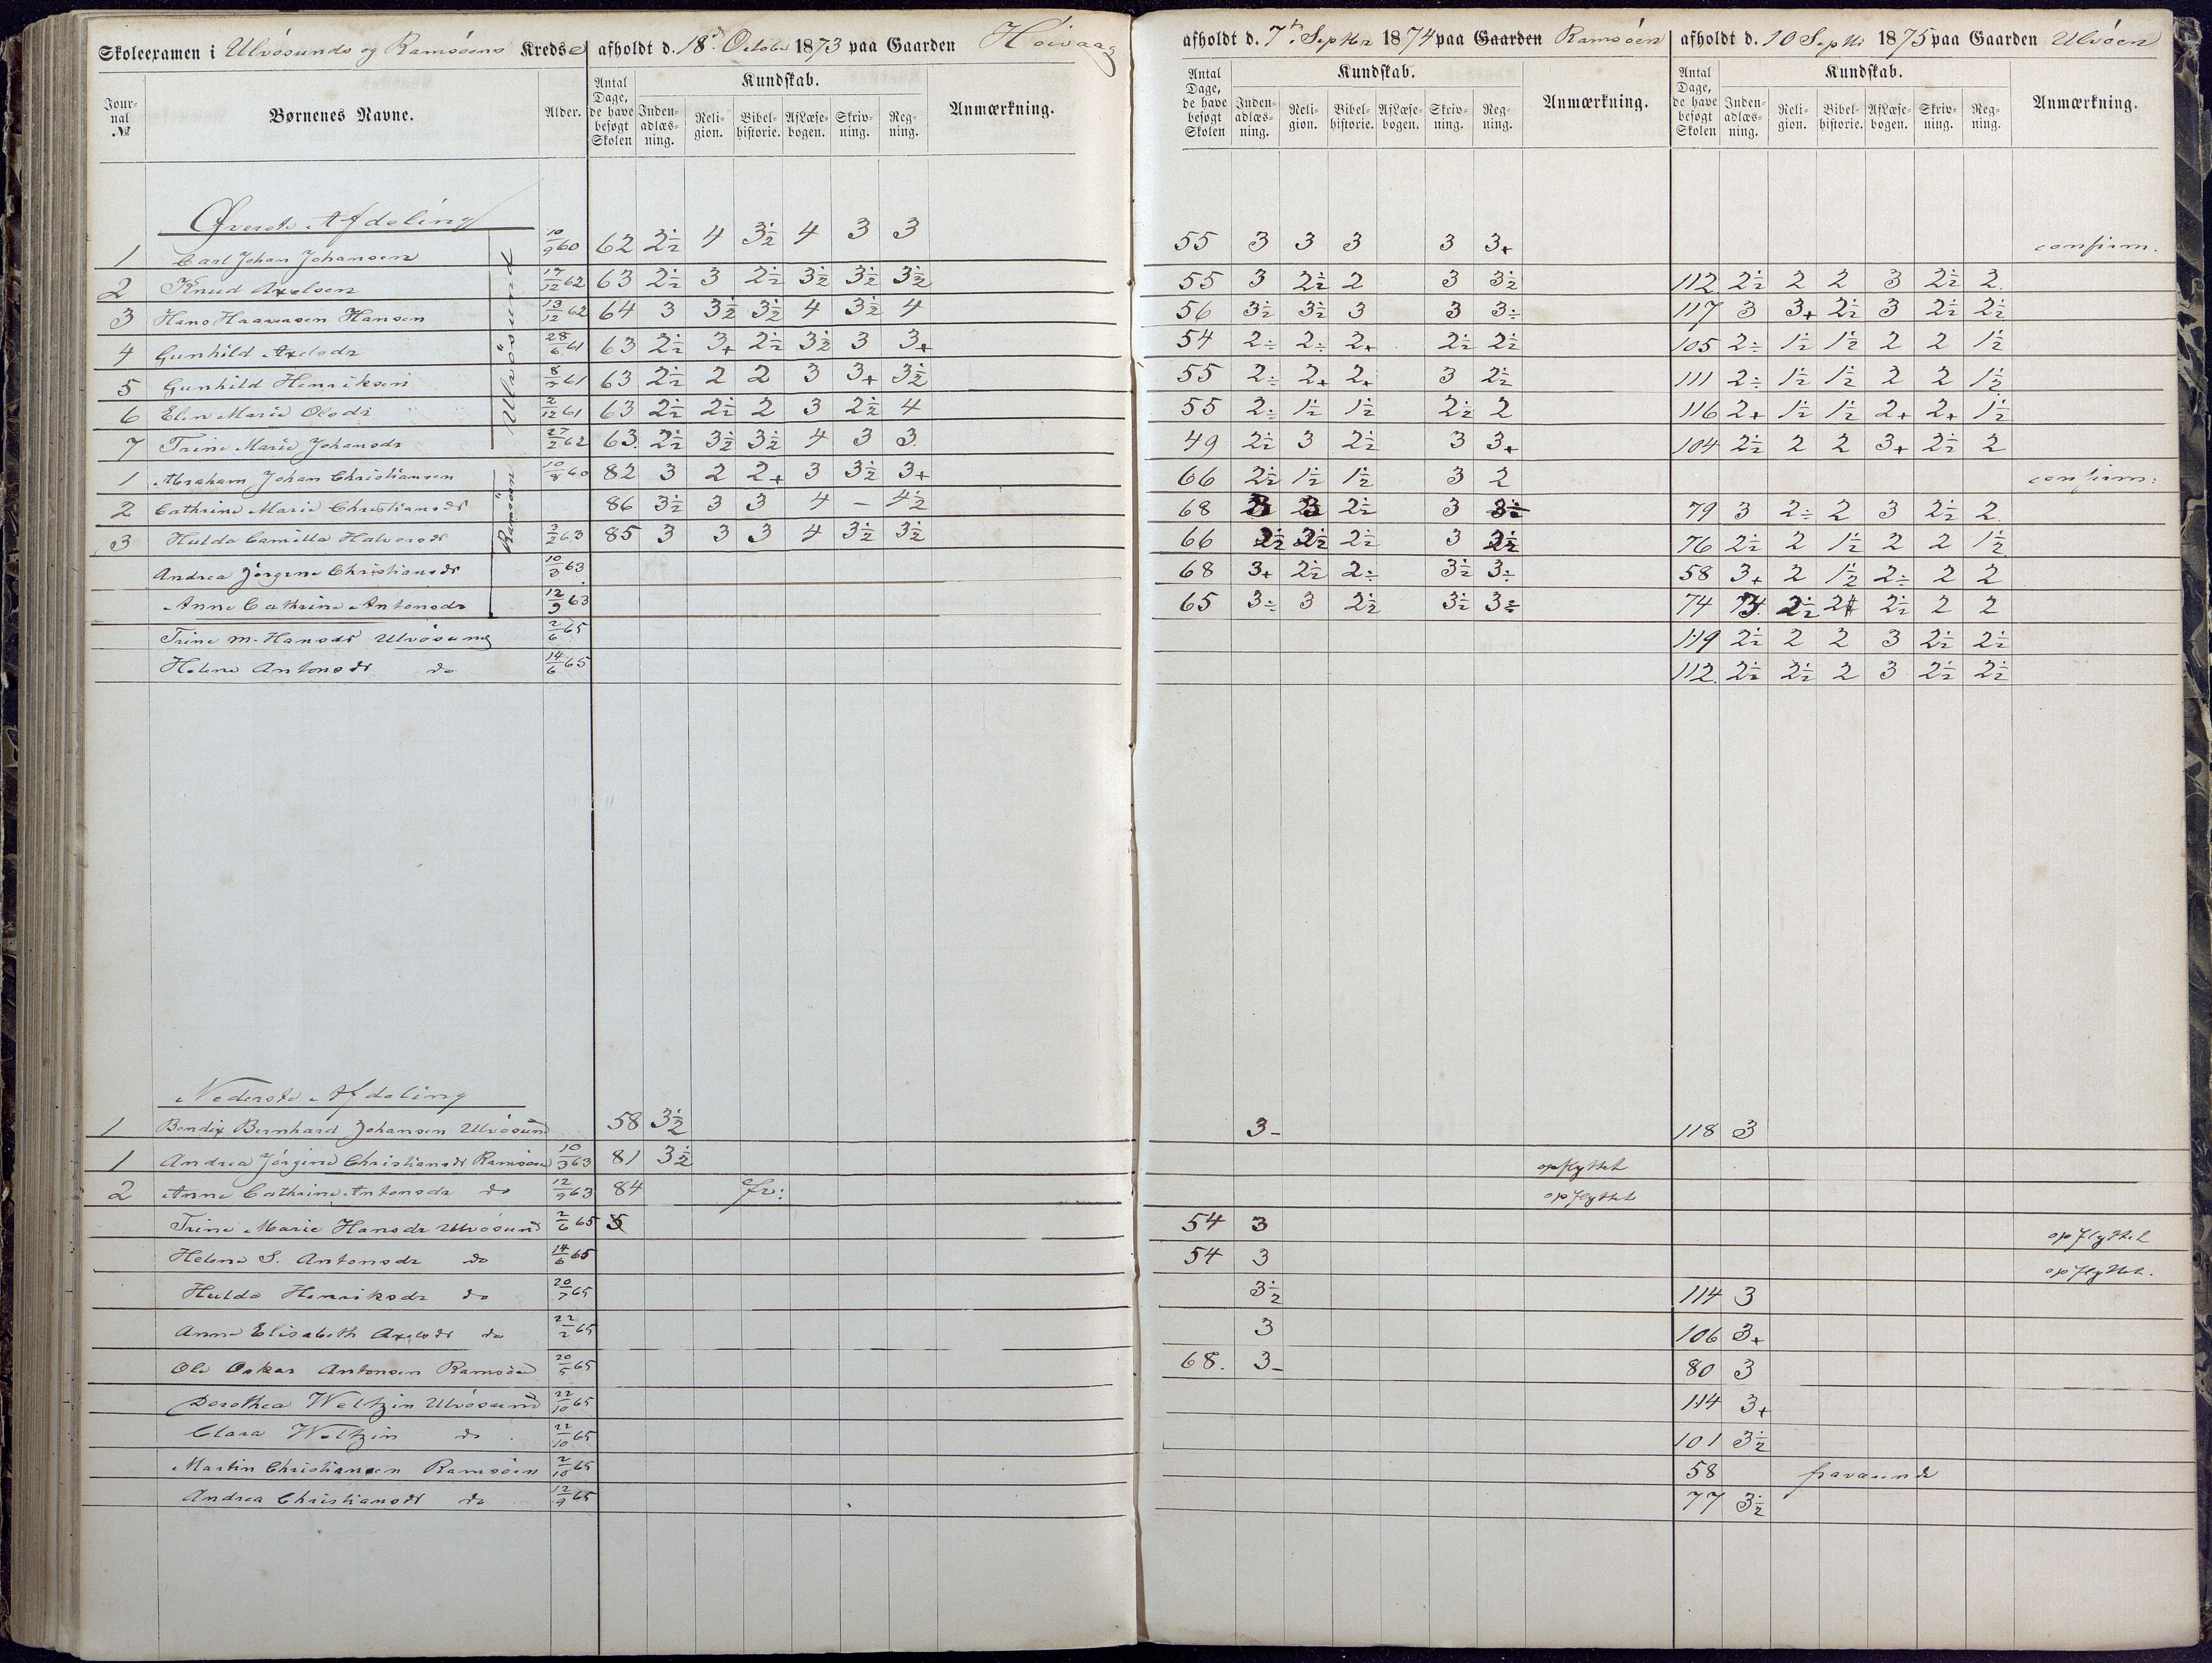 Skoleexamen i Ulvösunds og Ramsöens Kredse afholdt d. 18de Octobr 1873 paa Gaarden Höivaag afholdt d. 7de Septbr 1874 paa Gaarden Ramsöen afholdt d. 10 Septbr 1875 paa Gaarden Ulvöen
Jour-nal № Børnenes Navne. Alder. Antal Dage, de have besøgt Skolen Kundskab. Inden-adlæs-ning. Reli-gion. Bibel-historie. AfLæse-bogen. Skriv-ning. Reg-ning. Anmærkning. Antal Dage, de have besøgt Skolen Kundskab. Inden-adlæs-ning. Reli-gion. Bibel-historie. AfLæse-bogen. Skriv-ning. Reg-ning. Anmærkning. Antal Dage, de have besøgt Skolen Kundskab. Inden-adlæs-ning. Reli-gion. Bibel-historie. AfLæse-bogen. Skriv-ning. Reg-ning. Anmærkning.
Øverste Afdeling
Ulvösund
1 Carl Johan Johansen 10/9 60 62 2½ 4 3½ 4 3 3 55 3 3 3 3 3+ confirm.
2 Knud Axelsen 17/12 62 63 2½ 3 2½ 3½ 3½ 3½ 55 3 2½ 2 3 3½ 112 2½ 2 2 3 2½ 2
3 Hans Haavorsen Hansen 13/12 62 64 3 3½ 3½ 4 3½ 4 56 3½ 3½ 3 3 3÷ 117 3 3+ 2½ 3 2½ 2½
4 Gunhild Axelsdr 28/6 61 63 2½ 3+ 2½ 3½ 3 3+ 54 2÷ 2÷ 2+ 2½ 2½ 105 2÷ 1½ 1½ 2 2 1½
5 Gunhild Henriksen 61 63 2½ 2 2 3 3+ 3½ 55 2÷ 2+ 2+ 3 2½ 111 2÷ 1½ 1½ 2 2 1½
6 Elen Marie Olsdr 2/12 61 63 2½ 2½ 2 3 2½ 4 55 2÷ 1½ 1½ 2½ 2 116 2+ 1½ 1½ 2+ 2+ 1½
7 Trine Marie Johansdr 27/2 62 63 2½ 3½ 3½ 4 3 3 49 2½ 3 2½ 3 3+ 104 2½ 2 2 3+ 2½ 2
Ramsöen
1 Abraham Johan Christiansen 10/8 60 82 3 2 2+ 3 3½ 3+ 66 2½ 1½ 1½ 3 2 confirm:
2 Cathrine Marie Christiansdr 86 3½ 3 3 4 – 4½ 68 3 2½ 3 79 3 2÷ 2 3 2½ 2
3 Hulda Camilla Halvorsdr 3/2 63 85 3 3 3 4 3½ 3½ 66 2½ 2½ 2½ 3 2½ 76 2½ 2 1½ 2 2 1½
Andrea Jörgine Christiansdr 10/3 63 68 3+ 2½ 2÷ 3½ 3÷ 58 3+ 2 1½ 2÷ 2 2
Anne Cathrine Antonsdr 12/9 63 65 3÷ 3 2½ 3½ 3÷ 74 2½ 2½ 2 2
Trine M. Hansdr Ulvösund 2/6 65 119 2½ 2 2 3 2½ 2½
Helene Antonsdr do 14/6 65 112 2½ 2½ 2 3 2½ 2½
Nederste Afdeling
1 Bendix Bernhard Johansen Ulvösund 58 3½ 3- 118 3
1 Andrea Jörgine Christiansdr Ramsöen 10/3 63 81 3½ opflyttet
2 Anne Cathrine Antonsdr do 12/9 63 84 fr: opflyttet
Trine Marie Hansdr Ulvösund 2/6 65 54 3 opflyttet
Helene S. Antonsdr do 14/6 65 54 3 opflyttet.
Hulda Henriksdr do 20/7 65 3½ 114 3
Anne Elisabeth Axelsdr do 22/2 65 3 106 3+
Ole Oskar Antonsen Ramsöen 20/5 65 68. 3- 80 3
Dorothea Weltzin Ulvösund 22/10 65 114 3+
Clara Weltzin do 22/10 65 101 3½
Martin Christiansen Ramsöen 2/10 65 58 fraværende
Andrea Christiansdr do 12/9 65 77 3½